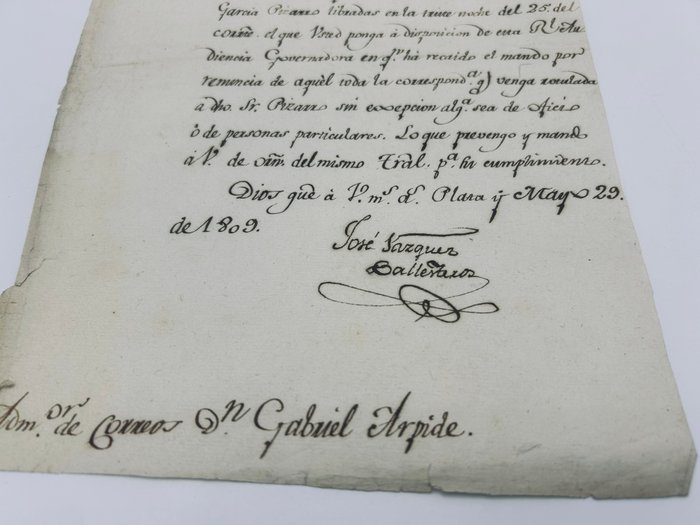 García Pizarro libradas en la triste noche del 25. del
corrte. el que Usted ponga à disposicion de esta Rl. Au
diencia Governadora en q.n há recaido el mando por
renuncia de aquèl toda la correspond.a q) venga rotulada
a dho. Sr. Pizarro sin excepcion alg.a sea de Ofici
ò de personas particulares. Lo que prevengo y mand
à V. de orn. del mismo Tral. p.a su cumplimiento.
Dios gue à V. m.s a.s Plata y Mayo 29.
de 1809.
José Vazquez
Ballesteros
Adm.or de Correos D.n Gabriel Arpide.